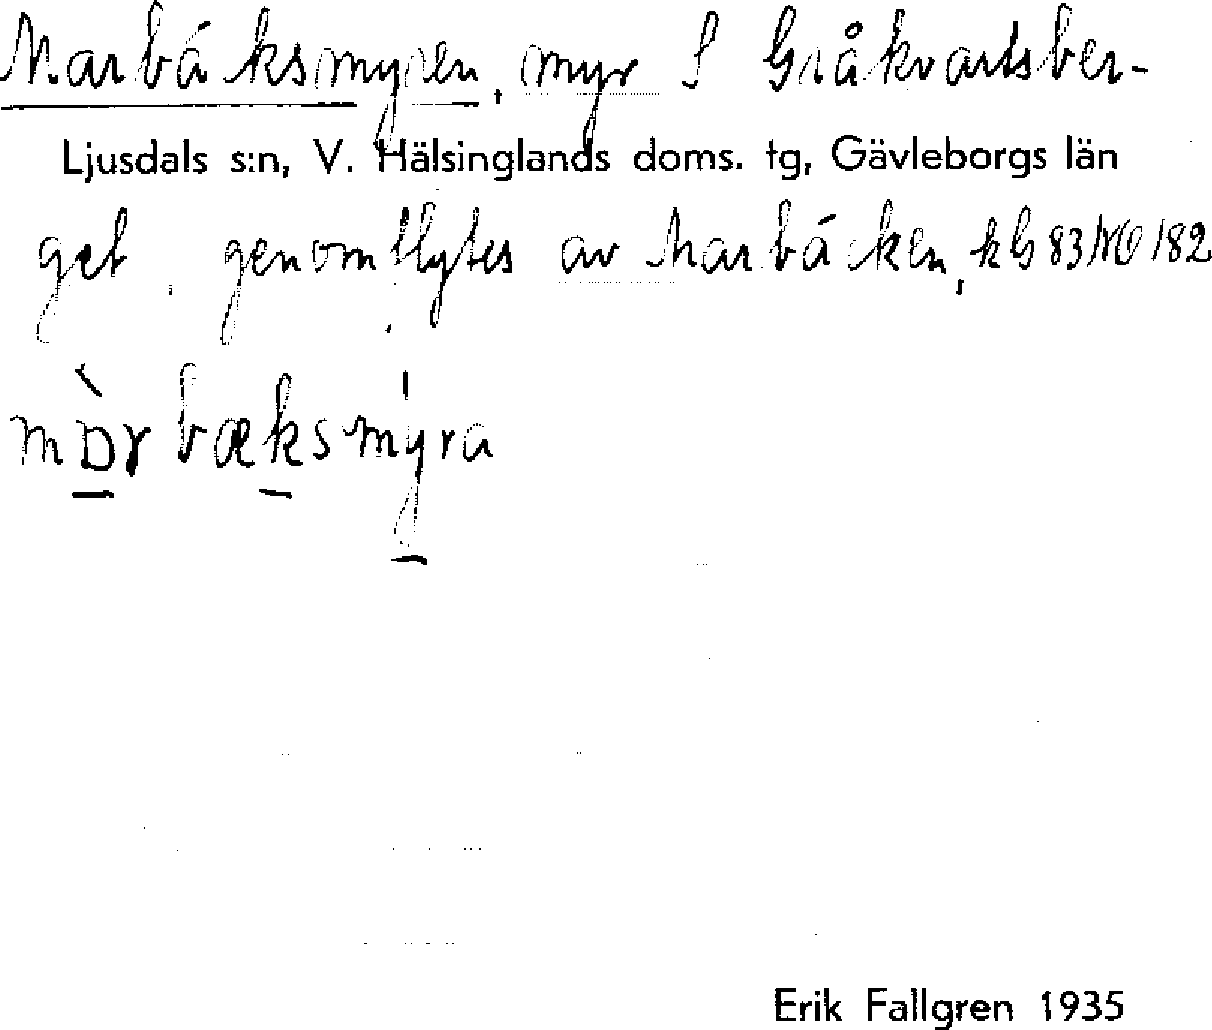 Marbäcksmyren, myr S Gråkvartsber-
Ljusdals s:n, V. Hälsinglands doms. tg, Gävleborgs län
get, genomflytes av Marbäcken, kb 83 NO 182
mɒ̀rbæksmyra
Erik Fallgren 1935